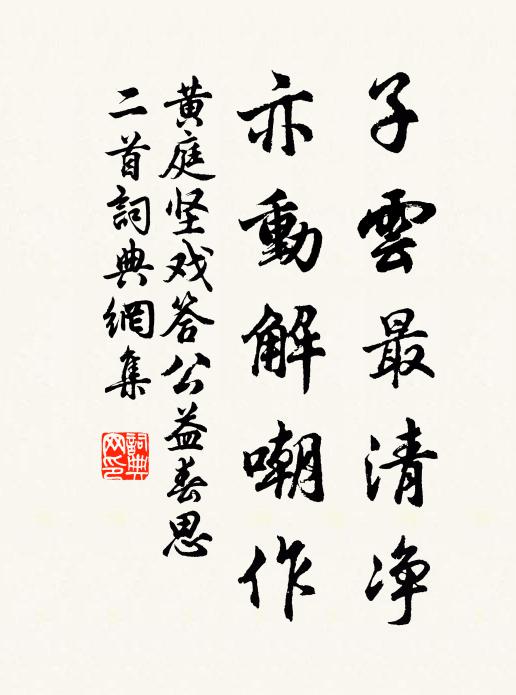 子雲最清净
亦動解嘲作
黄庭坚戏答公益春思
二首詞典網集
詞典網印